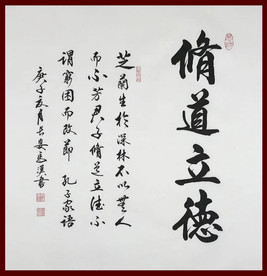 脩道立德
芝蘭生於深林不以無人
而不芳君子脩道立德不
謂窮困而改節 孔子家語
庚子夏月長安書